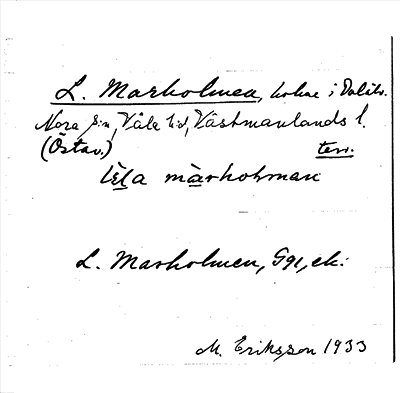 L. Marholmen, holme i Dalälv.
Nora sn, Våla hd, Västmanlands l.
(Östav.) terr.
lìt̲a màrhohman
L. Marholmen, Gge, ek.
M. Eriksson 1933